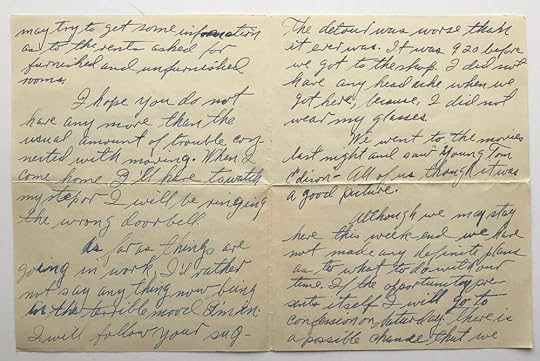 may try to get some information
as to the rents asked for
furnished and unfurnished
rooms.
I hope you do not
have any more than the
usual amount of trouble con-
nected with moving. When I
come home I'll have to watch
my step or I will be ringing
the wrong doorbell.
As far as things are
going in work, I'd rather
not say any thing now being
in the terrible mood I'm in.
I will follow your sug-
The detour was worse than
it ever was. It was 9 20 before
we got to the shop. I did not
have any head ache when we
got here, because, I did not
wear my glasses.
We went to the movies
last night and saw "Young Tom
Edison" - All of us thought it was
a good picture.
Although we may stay
here this week end we have
not made any definite plans
as to what to do with our
time. If the opportunity pre-
sents itself I will go to
confession on Saturday. There is
a possible chance that we